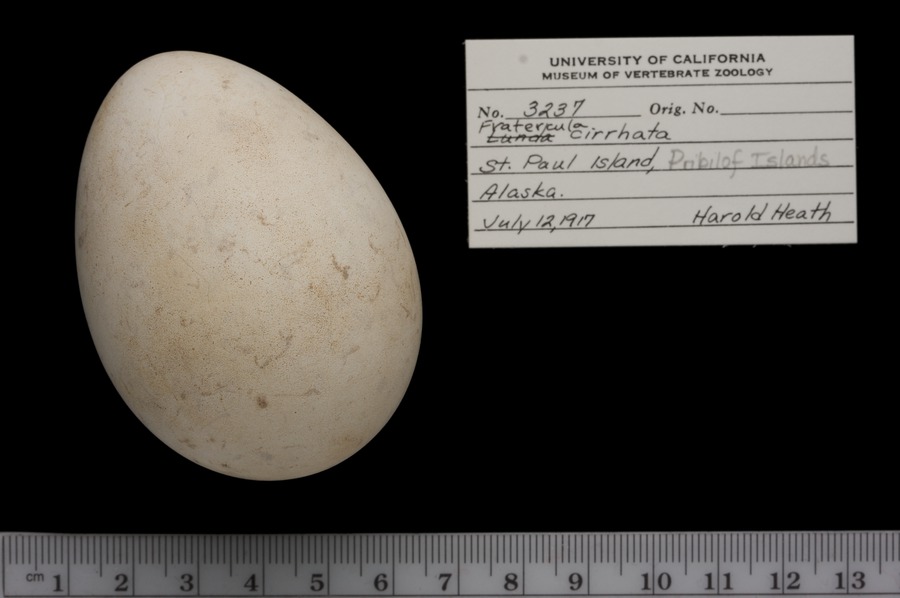 UNIVERSITY OF CALIFORNIA
MUSEUM OF VERTEBRATE ZOOLOGY
No. 3237 Orig. No.
Fratercula
Lunda Cirrhata
St. Paul Island, Pribilof Islands
Alaska.
July 12, 1917 Harold Heath
cm 1 2 3 4 5 6 7 8 9 10 11 12 13